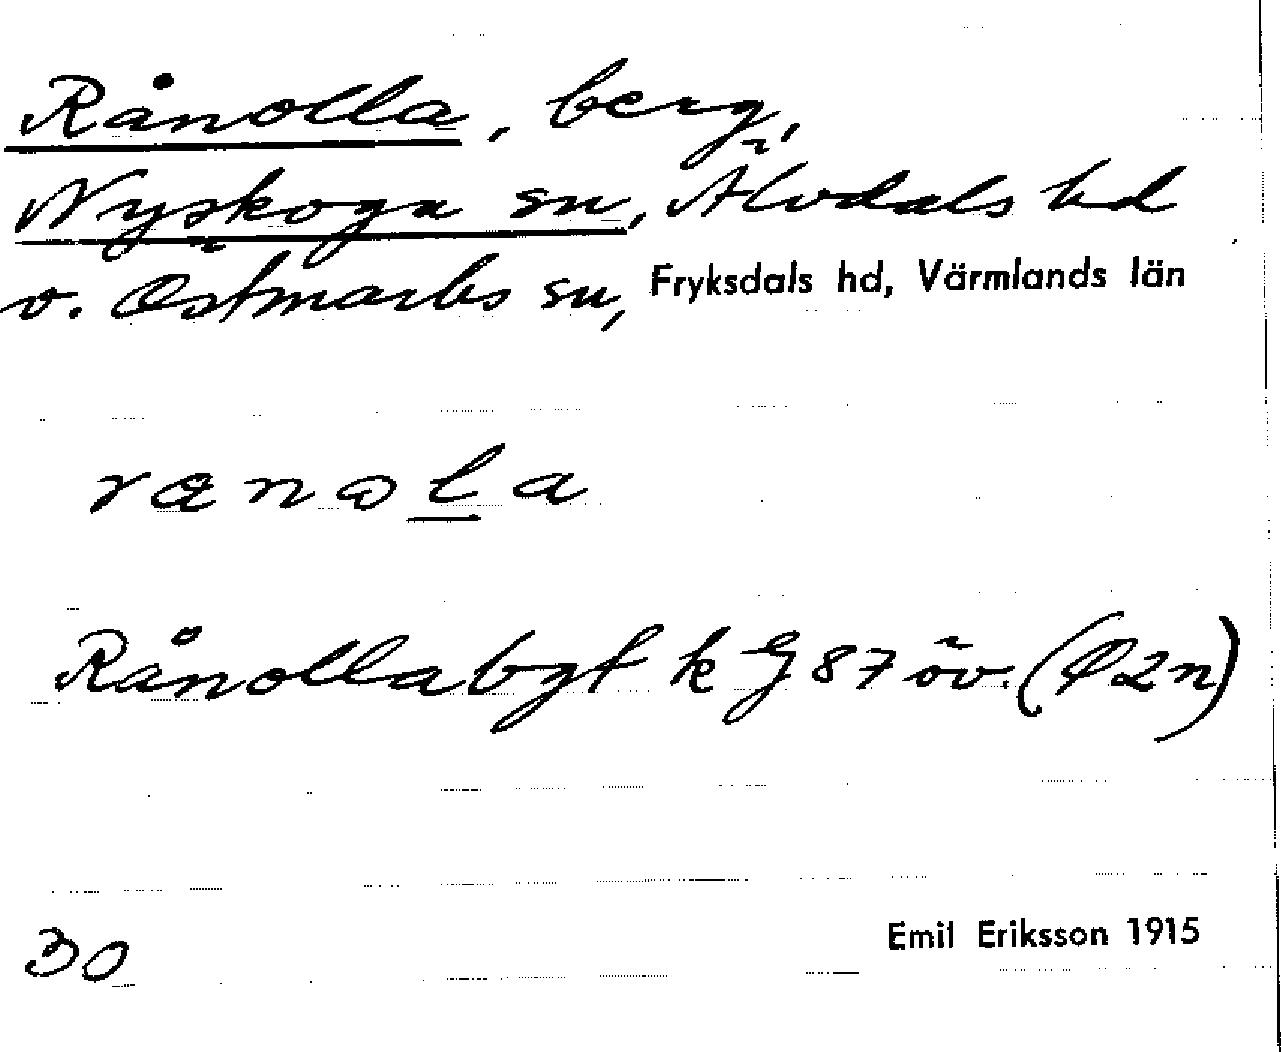 Rånolla, berg,
Nyskoga sn, Älvdals hd
v. Östmarks sn, Fryksdals hd, Värmlands län
rænola
Rånollabgt k G 87 öv. (Ö2n)
30
Emil Eriksson 1915